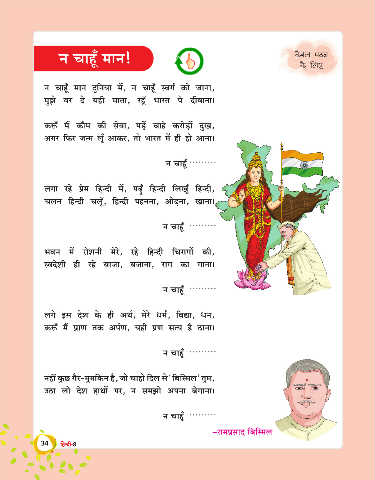 न चाहूँ मान!
केवल पठन
के लिए
न चाहूँ मान दुनिया में, न चाहूँ स्वर्ग को जाना,
मुझे वर दे यही माता, रहूँ भारत पे दीवाना।
करूँ मैं कौम की सेवा, पड़ें चाहे करोड़ों दुख,
अगर फिर जन्म लूँ आकर, तो भारत में ही हो आना।
न चाहूँ .........
लगा रहे प्रेम हिन्दी में, पढ़ूँ हिन्दी लिखूँ हिन्दी,
चलन हिन्दी चलूँ, हिन्दी पहनना, ओढ़ना, खाना।
न चाहूँ .........
भवन में रोशनी मेरे, रहे हिन्दी चिरागों की,
स्वदेशी ही रहे बाजा, बजाना, राग का गाना।
न चाहूँ .........
लगें इस देश के ही अर्थ, मेरे धर्म, विद्या, धन,
करूँ मैं प्राण तक अर्पण, यही प्रण सत्य है ठाना।
न चाहूँ .........
नहीं कुछ गैर-मुमकिन है, जो चाहो दिल से 'बिस्मिल' तुम,
उठा लो देश हाथों पर, न समझो अपना बेगाना।
न चाहूँ .........
–रामप्रसाद बिस्मिल
34 हिन्दी-8